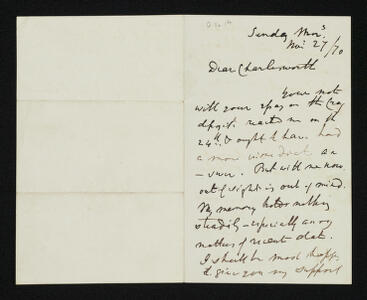 Sunday Morn^s
Nov 27/70
Dear Charlesworth
Your note
with your essay on the Crag
deposits reached me on the
24th & ought to have had
a more immediate an
-swer. But with me now
out of sight is out of mind.
My memory holds nothing
steadily - especially any
matters of recent date.
I should be most happy
to give you my support